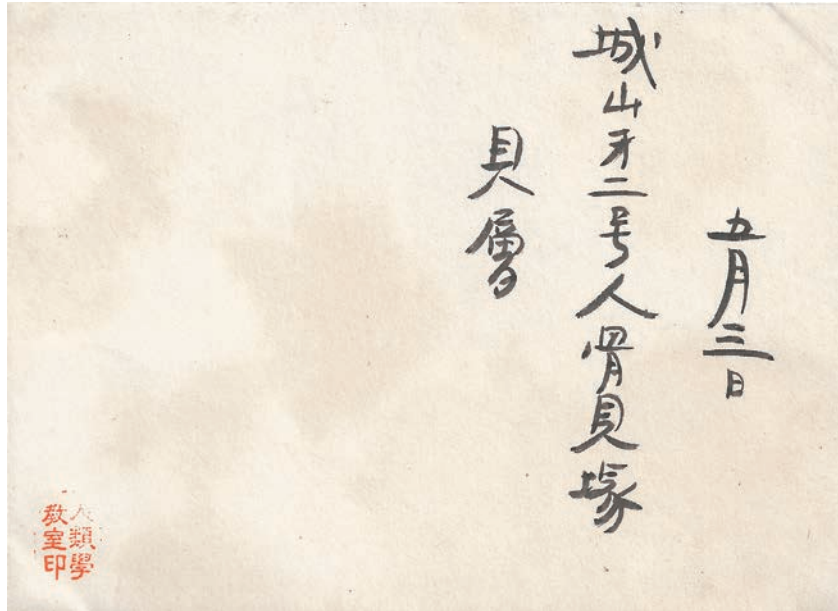 五月三日
城山第二号人骨貝塚
貝層
人類學
教室印